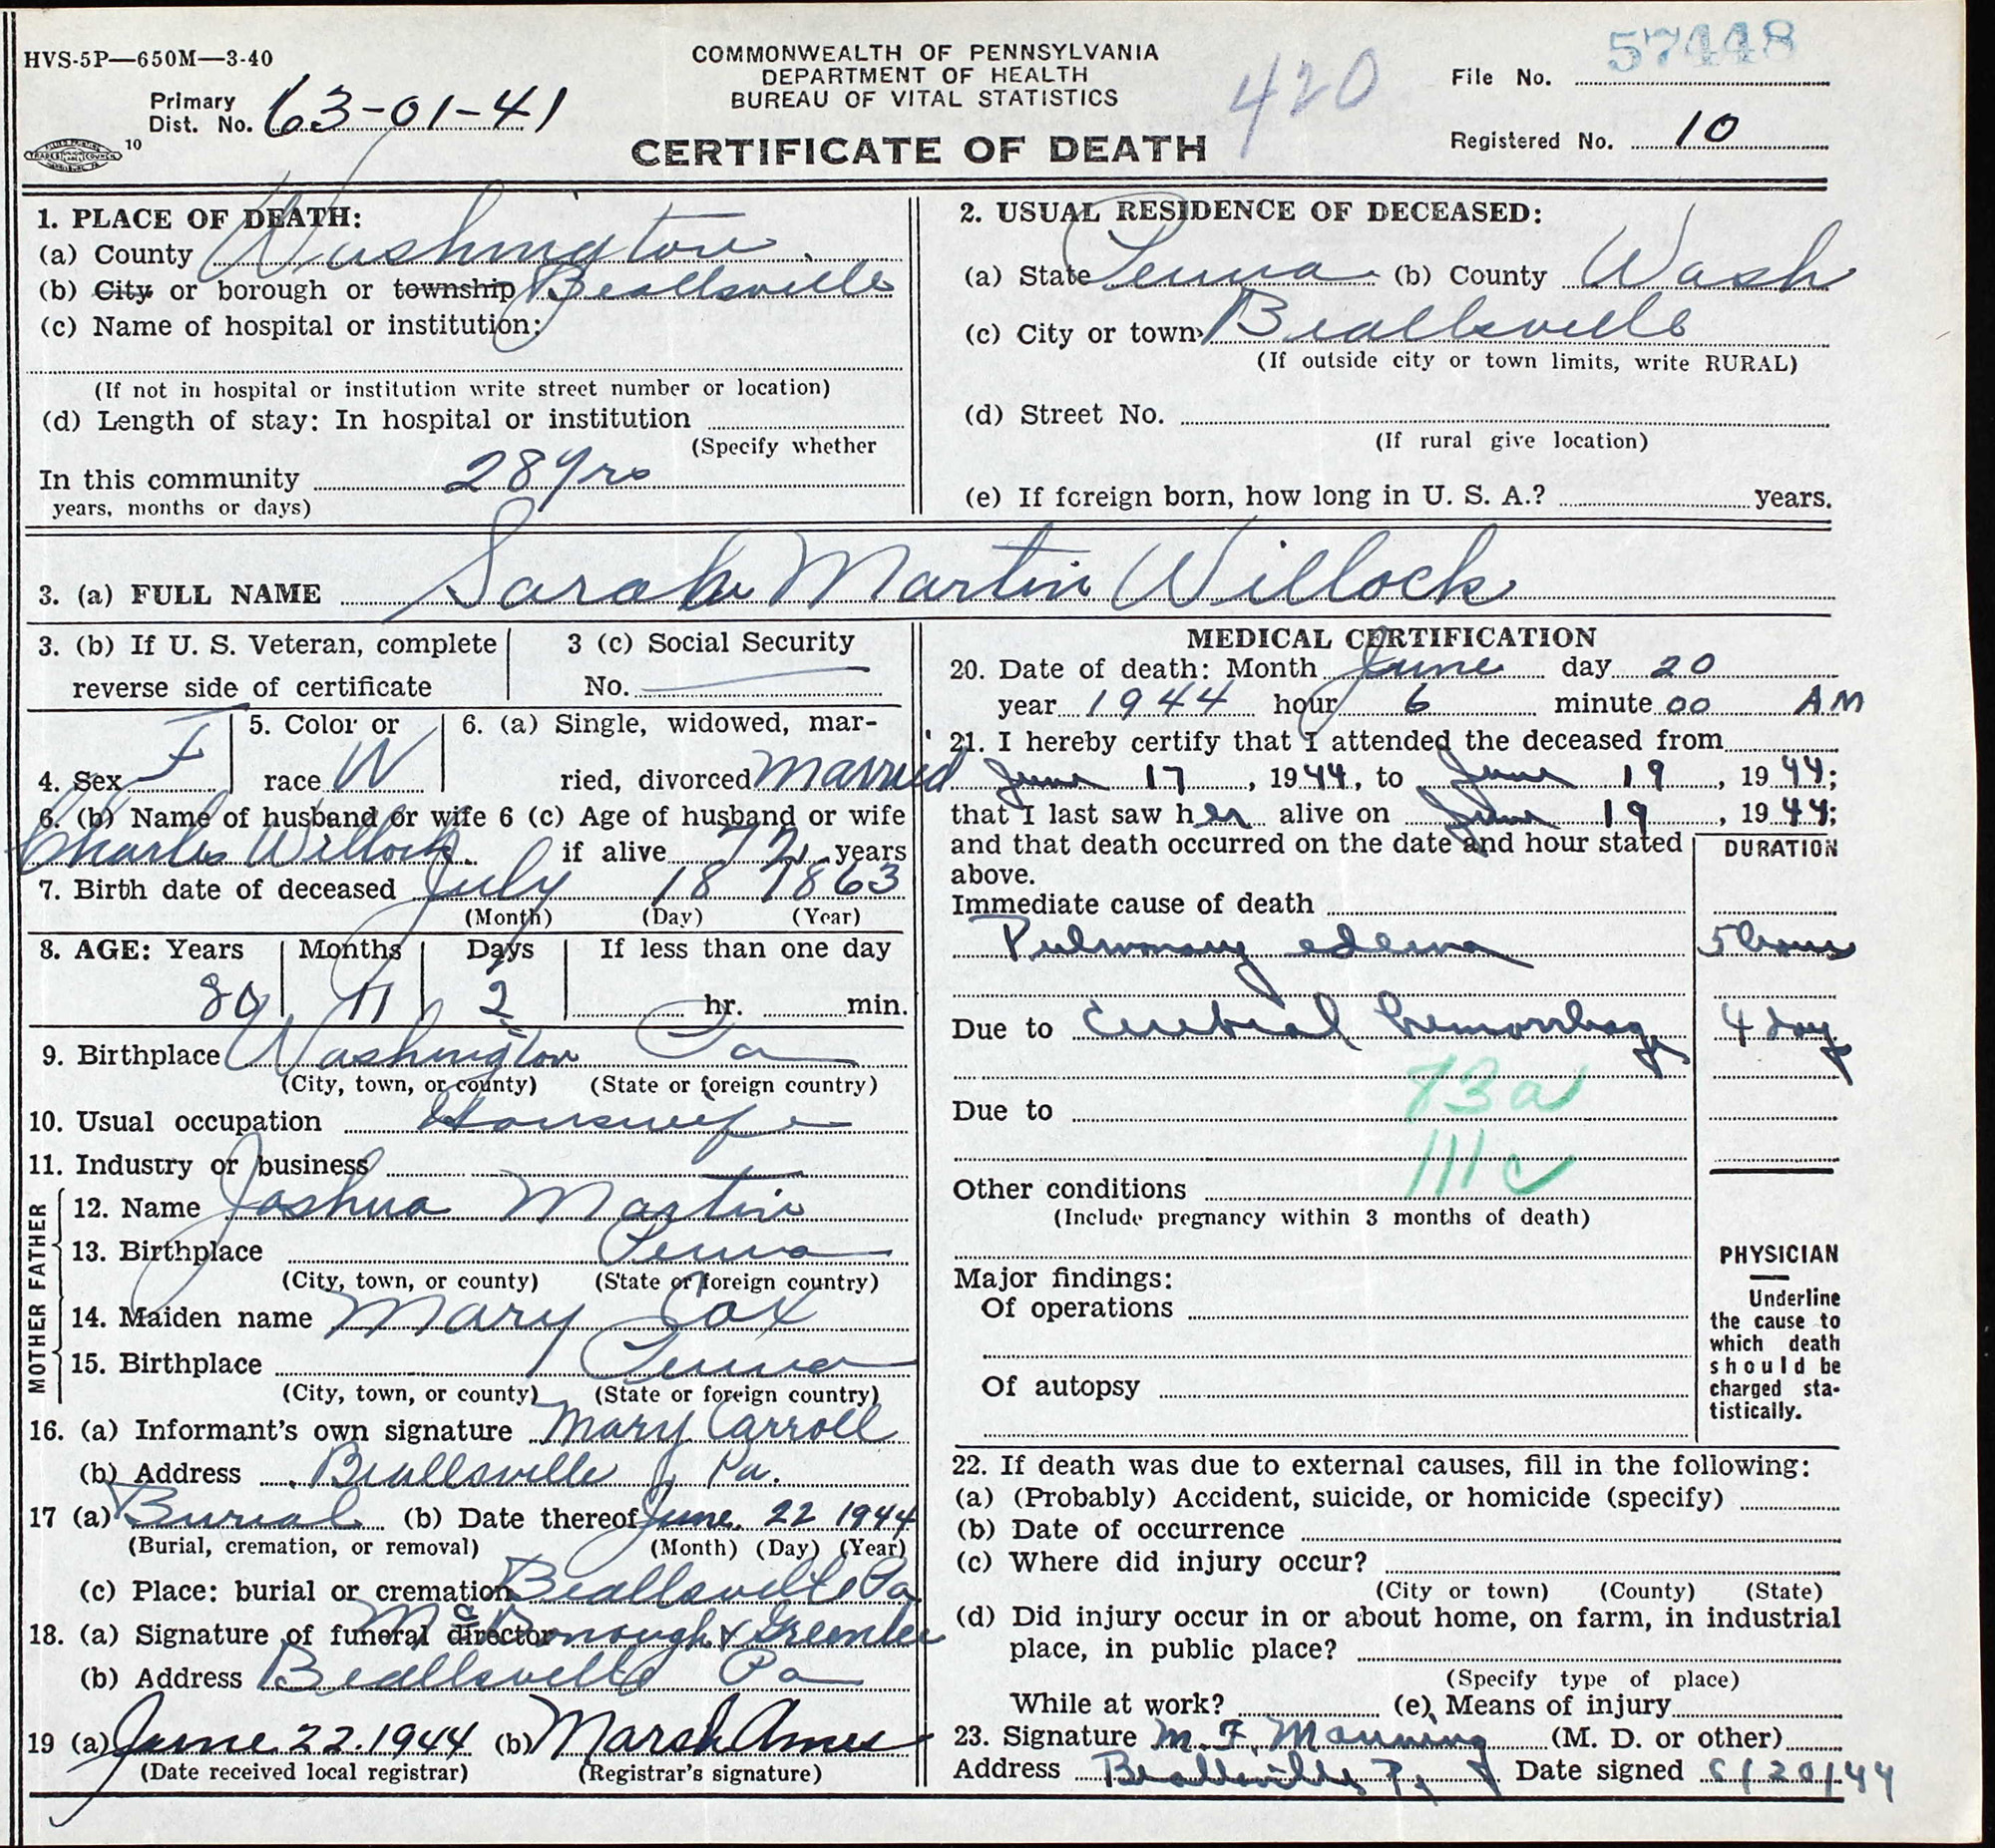 HVS-5P—650M—3-40
COMMONWEALTH OF PENNSYLVANIA
DEPARTMENT OF HEALTH
BUREAU OF VITAL STATISTICS
CERTIFICATE OF DEATH
420
57448
File No.
Registered No. 10
Primary
Dist. No. 63-01-41
10
1. PLACE OF DEATH:
(a) County Washington
(b) City or borough or township Beallsville
(c) Name of hospital or institution:
(If not in hospital or institution write street number or location)
(d) Length of stay: In hospital or institution
(Specify whether
In this community 28 yrs
years, months or days)
2. USUAL RESIDENCE OF DECEASED:
(a) State Penna (b) County Wash
(c) City or town Beallsville
(If outside city or town limits, write RURAL)
(d) Street No.
(If rural give location)
(e) If foreign born, how long in U. S. A.? years.
3. (a) FULL NAME Sarah Martin Willock
3. (b) If U. S. Veteran, complete
reverse side of certificate
3 (c) Social Security
No.
4. Sex F
5. Color or
race W
6. (a) Single, widowed, mar-
ried, divorced Married
6. (b) Name of husband or wife
Charles Willock
6 (c) Age of husband or wife
if alive 72 years
7. Birth date of deceased July 18 1863
(Month) (Day) (Year)
8. AGE: Years Months Days If less than one day
80 11 2 hr. min.
9. Birthplace Washington Pa
(City, town, or county) (State or foreign country)
10. Usual occupation Housewife
11. Industry or business
FATHER
12. Name Joshua Martin
13. Birthplace Penna
(City, town, or county) (State or foreign country)
MOTHER
14. Maiden name Mary Cox
15. Birthplace Penna
(City, town, or county) (State or foreign country)
16. (a) Informant's own signature Mary Carroll
(b) Address Beallsville Pa.
17 (a) Burial (b) Date thereof June 22 1944
(Burial, cremation, or removal) (Month) (Day) (Year)
(c) Place: burial or cremation Beallsville Pa
18. (a) Signature of funeral director McDonough & Greenlee
(b) Address Beallsville Pa
19 (a) June 22. 1944 (b) Marsh Ames
(Date received local registrar) (Registrar's signature)
MEDICAL CERTIFICATION
20. Date of death: Month June day 20
year 1944 hour 6 minute 00 AM
21. I hereby certify that I attended the deceased from
June 17, 1944, to June 19, 1944;
that I last saw her alive on June 19, 1944;
and that death occurred on the date and hour stated
above.
DURATION
Immediate cause of death
Pulmonary edema 5 hours
Due to Cerebral hemorrhage 4 day
83a
Due to
111c
Other conditions
(Include pregnancy within 3 months of death)
Major findings:
Of operations
Of autopsy
PHYSICIAN
Underline
the cause to
which death
should be
charged sta-
tistically.
22. If death was due to external causes, fill in the following:
(a) (Probably) Accident, suicide, or homicide (specify)
(b) Date of occurrence
(c) Where did injury occur?
(City or town) (County) (State)
(d) Did injury occur in or about home, on farm, in industrial
place, in public place?
(Specify type of place)
While at work? (e) Means of injury
23. Signature M. F. Manning (M. D. or other)
Address Beallsville Pa Date signed 6/20/44